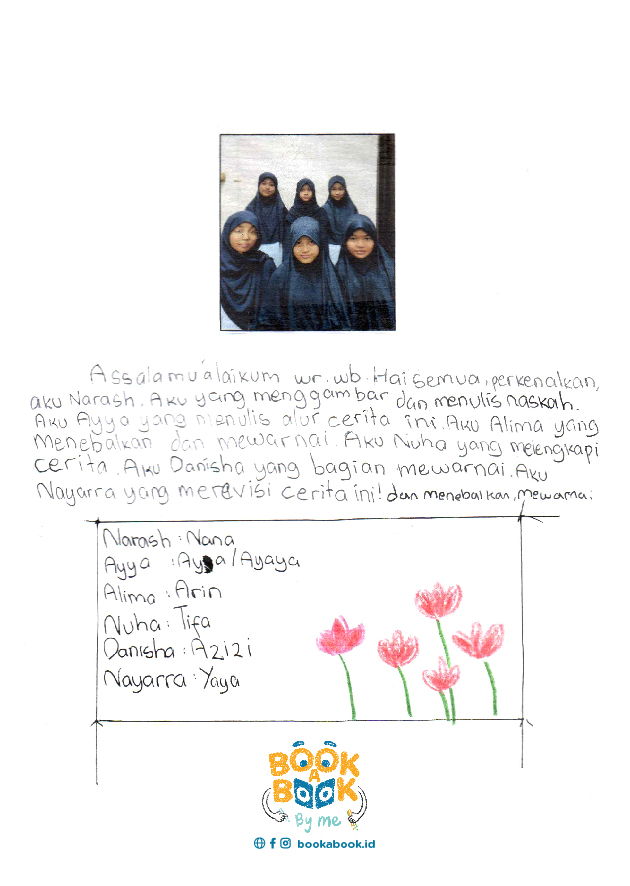 Assalamu'alaikum wr.wb. Hai semua, perkenalkan,
aku Narash. Aku yang menggambar dan menulis naskah.
Aku Ayya yang menulis alur cerita ini. Aku Alima yang
Menebalkan dan mewarnai. Aku Nuha yang melengkapi
cerita. Aku Danisha yang bagian mewarnai. Aku
Nayarra yang merevisi cerita ini! dan menebalkan, mewarnai
Narash : Nana
Ayya : Ayya/Ayaya
Alima : Arin
Nuha : Tifa
Danisha : Azizi
Nayarra : Yaya
BOOK
A
BOOK
By me
bookabook.id